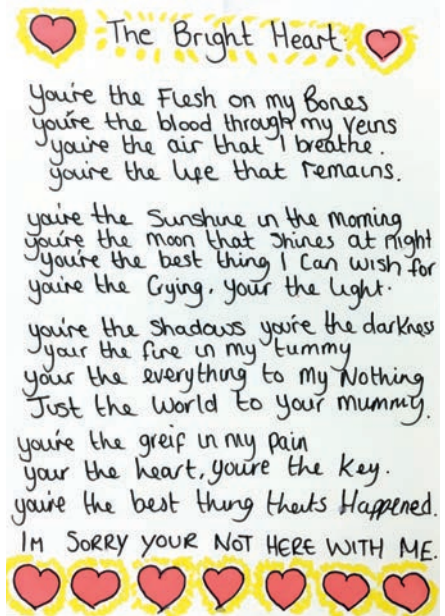 The Bright Heart.
you're the Flesh on my Bones
you're the blood through my veins
you're the air that I breathe.
you're the life that remains.
you're the Sunshine in the morning
you're the moon that shines at night
you're the best thing I can wish for
you're the Crying. your the light.
you're the shadows you're the darkness
your the fire in my tummy
your the everything to my Nothing
Just the world to your mummy.
you're the greif in my pain
your the heart, you're the key.
you're the best thing thats Happened.
IM SORRY YOUR NOT HERE WITH ME.